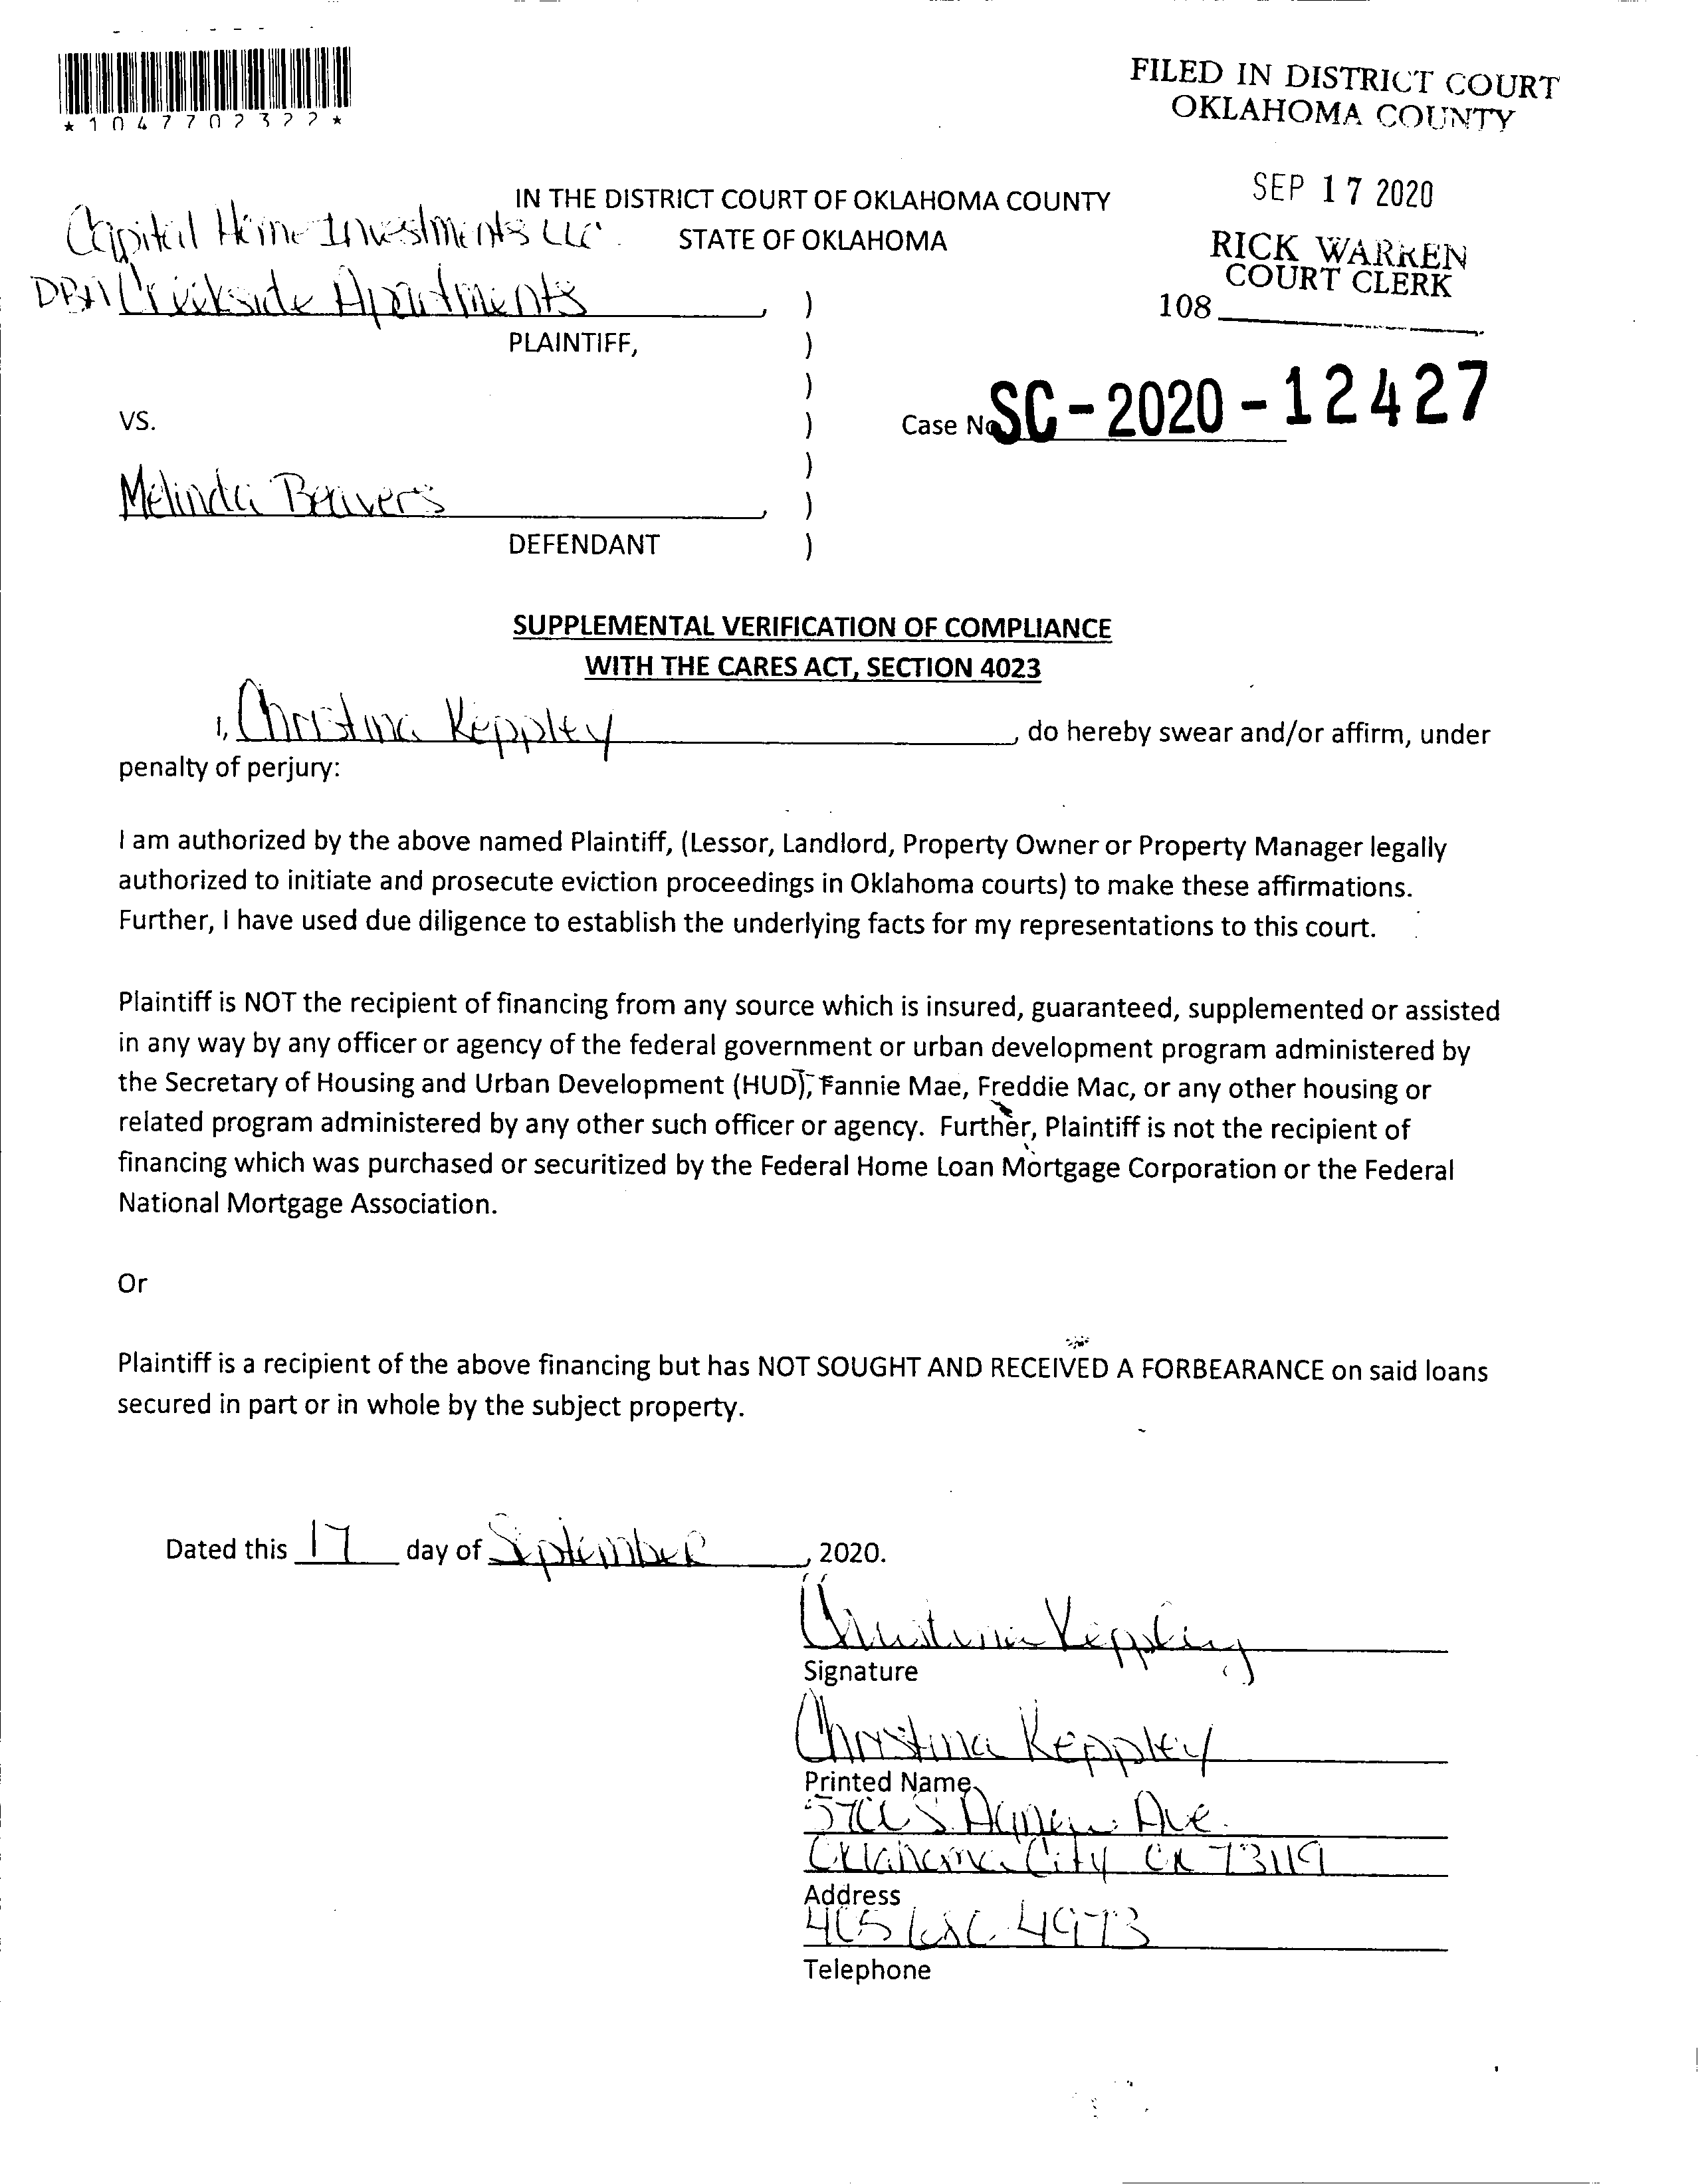 *1047702322*
FILED IN DISTRICT COURT
OKLAHOMA COUNTY
SEP 17 2020
RICK WARREN
COURT CLERK
108
IN THE DISTRICT COURT OF OKLAHOMA COUNTY
STATE OF OKLAHOMA
Capital Home Investments LLC
DBA Creekside Apartments, )
PLAINTIFF, )
)
VS. )
Case No SC-2020-12427
)
Melinda Beavers, )
DEFENDANT )
SUPPLEMENTAL VERIFICATION OF COMPLIANCE
WITH THE CARES ACT, SECTION 4023
I, Christina Keppley, do hereby swear and/or affirm, under
penalty of perjury:
I am authorized by the above named Plaintiff, (Lessor, Landlord, Property Owner or Property Manager legally
authorized to initiate and prosecute eviction proceedings in Oklahoma courts) to make these affirmations.
Further, I have used due diligence to establish the underlying facts for my representations to this court.
Plaintiff is NOT the recipient of financing from any source which is insured, guaranteed, supplemented or assisted
in any way by any officer or agency of the federal government or urban development program administered by
the Secretary of Housing and Urban Development (HUD), Fannie Mae, Freddie Mac, or any other housing or
related program administered by any other such officer or agency. Further, Plaintiff is not the recipient of
financing which was purchased or securitized by the Federal Home Loan Mortgage Corporation or the Federal
National Mortgage Association.
Or
Plaintiff is a recipient of the above financing but has NOT SOUGHT AND RECEIVED A FORBEARANCE on said loans
secured in part or in whole by the subject property.
Dated this 17 day of September, 2020.
Christina Keppley
Signature
Christina Keppley
Printed Name
S. Agnew Ave.
Oklahoma City OK 73119
Address
405 4973
Telephone